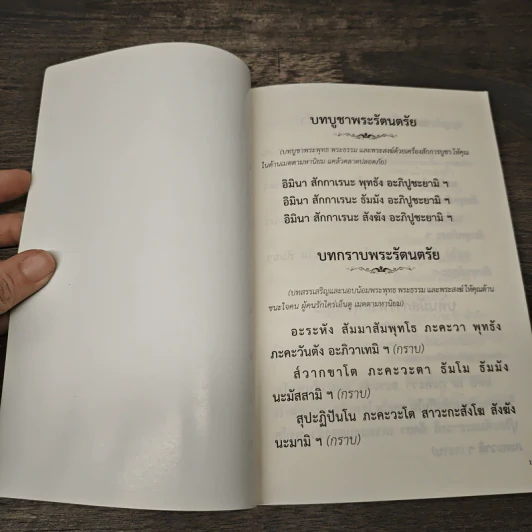 บทบูชาพระรัตนตรัย
(บทบูชาพระพุทธ พระธรรม และพระสงฆ์ด้วยเครื่องสักการบูชา ให้คุณ
ในด้านเมตตามหานิยม แคล้วคลาดปลอดภัย)
อิมินา สักกาเรนะ พุทธัง อะภิปูชะยามิ ฯ
อิมินา สักกาเรนะ ธัมมัง อะภิปูชะยามิ ฯ
อิมินา สักกาเรนะ สังฆัง อะภิปูชะยามิ ฯ
บทกราบพระรัตนตรัย
(บทสรรเสริญและนอบน้อมพระพุทธ พระธรรม และพระสงฆ์ ให้คุณด้าน
ชนะใจคน ผู้คนรักใคร่เอ็นดู เมตตามหานิยม)
อะระหัง สัมมาสัมพุทโธ ภะคะวา พุทธัง
ภะคะวันตัง อะภิวาเทมิ ฯ (กราบ)
ส๎วากขาโต ภะคะวะตา ธัมโม ธัมมัง
นะมัสสามิ ฯ (กราบ)
สุปะฏิปันโน ภะคะวะโต สาวะกะสังโฆ สังฆัง
นะมามิ ฯ (กราบ)